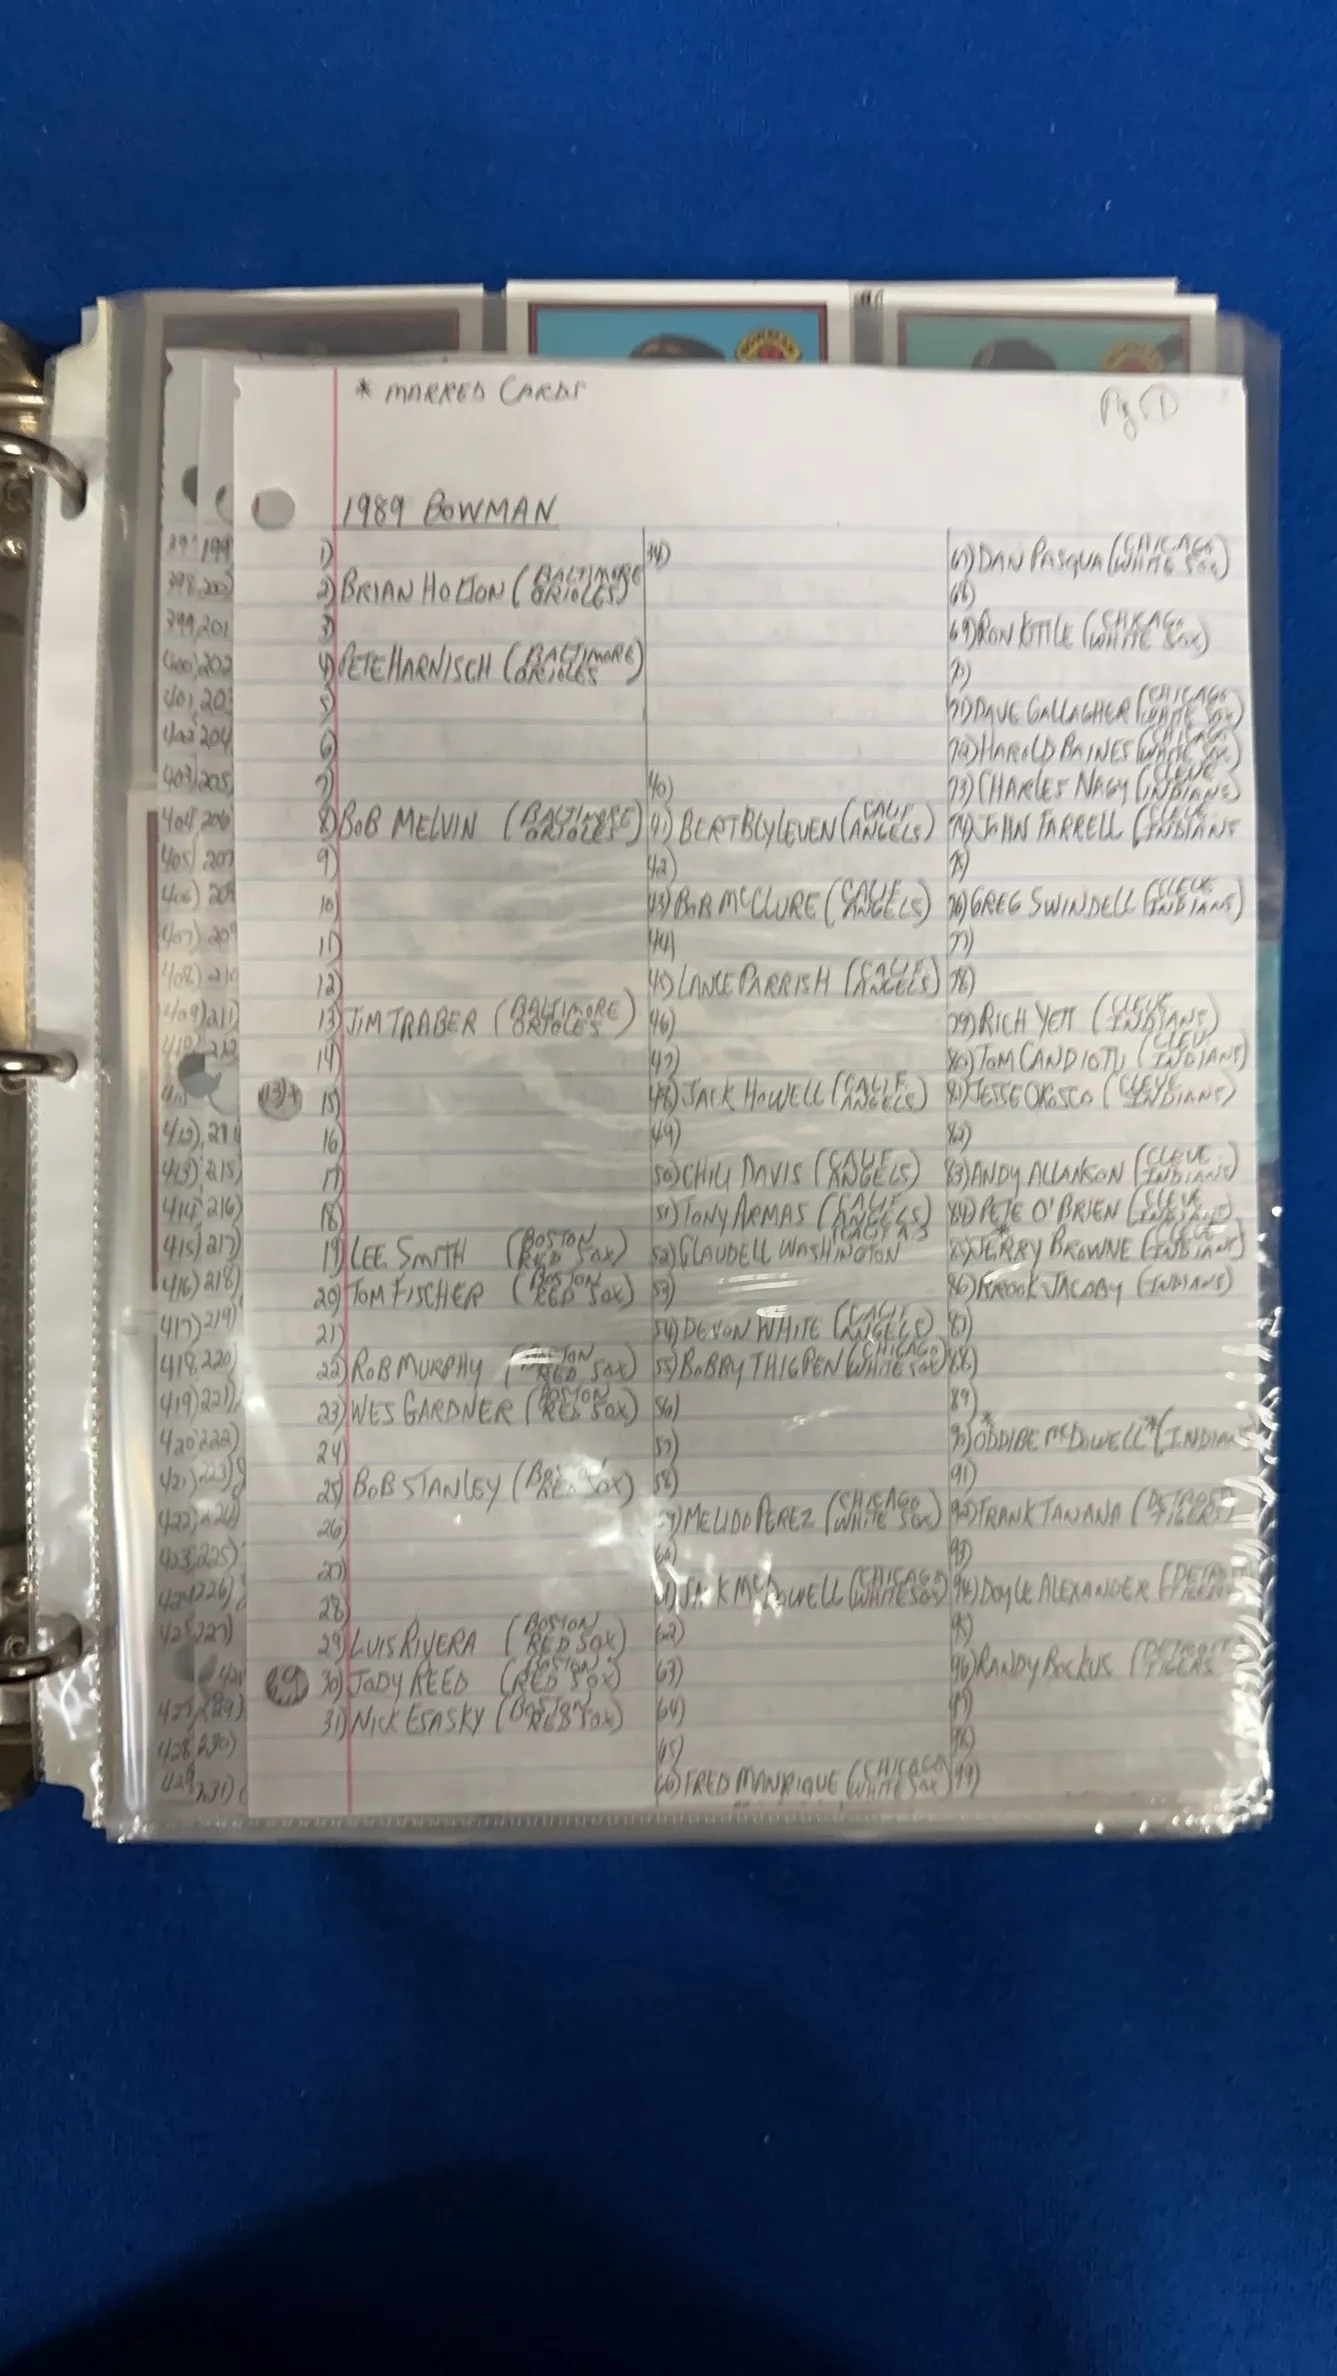 * MARRED CARDS
Pg 1
1989 BOWMAN
1)
2) BRIAN HOLTON (BALTIMORE ORIOLES)
3)
4) PETE HARNISCH (BALTIMORE ORIOLES)
5)
6)
7)
8) BOB MELVIN (BALTIMORE ORIOLES)
9)
10)
11)
12)
13) JIM TRABER (BALTIMORE ORIOLES)
14)
15)
16)
17)
18)
19) LEE SMITH (BOSTON RED SOX)
20) TOM FISCHER (BOSTON RED SOX)
21)
22) ROB MURPHY (BOSTON RED SOX)
23) WES GARDNER (BOSTON RED SOX)
24)
25) BOB STANLEY (BOSTON RED SOX)
26)
27)
28)
29) LUIS RIVERA (BOSTON RED SOX)
30) JODY REED (BOSTON RED SOX)
31) NICK ESASKY (BOSTON RED SOX)
40)
41) BERT BLYLEVEN (CALIF ANGELS)
42)
43) BOB McCLURE (CALIF ANGELS)
44)
45) LANCE PARRISH (CALIF ANGELS)
46)
47)
48) JACK HOWELL (CALIF. ANGELS)
49)
50) CHILI DAVIS (CALIF ANGELS)
51) TONY ARMAS (CALIF ANGELS)
52) CLAUDELL WASHINGTON
53)
54) DEVON WHITE (CALIF ANGELS)
55) BOBBY THIGPEN (CHICAGO WHITE SOX
56)
57)
58)
59) MELIDO PEREZ (CHICAGO WHITE SOX)
60)
61) JACK McDOWELL (CHICAGO WHITE SOX)
62)
63)
64)
65)
66) FRED MANRIQUE (CHICAGO WHITE SOX
67) DAN PASQUA (CHICAGO WHITE SOX)
68)
69) RON KITTLE (CHICAGO WHITE SOX)
70)
71) DAVE GALLAGHER (CHICAGO WHITE SOX)
72) HAROLD BAINES (CHICAGO WHITE SOX)
73) CHARLES NAGY (CLEVE INDIANS)
74) JOHN FARRELL (CLEVE INDIANS
75)
76) GREG SWINDELL (CLEVE INDIANS)
77)
78)
79) RICH YETT (CLEVE INDIANS)
80) TOM CANDIOTTI (CLEV. INDIANS)
81) JESSE OROSCO (CLEVE INDIANS)
82)
83) ANDY ALLANSON (CLEVE. INDIANS)
84) PETE O'BRIEN (CLEVE INDIANS)
85) JERRY BROWNE (CLEVE INDIANS)
86) BROOK JACOBY (INDIANS)
87)
88)
89)
90) *ODDIBE McDOWELL* (INDIANS
91)
92) FRANK TANANA (DETROIT TIGERS)
93)
94) DOYLE ALEXANDER (DETROIT TIGERS
95)
96) RANDY BOCKUS (DETROIT TIGERS
97)
98)
99)